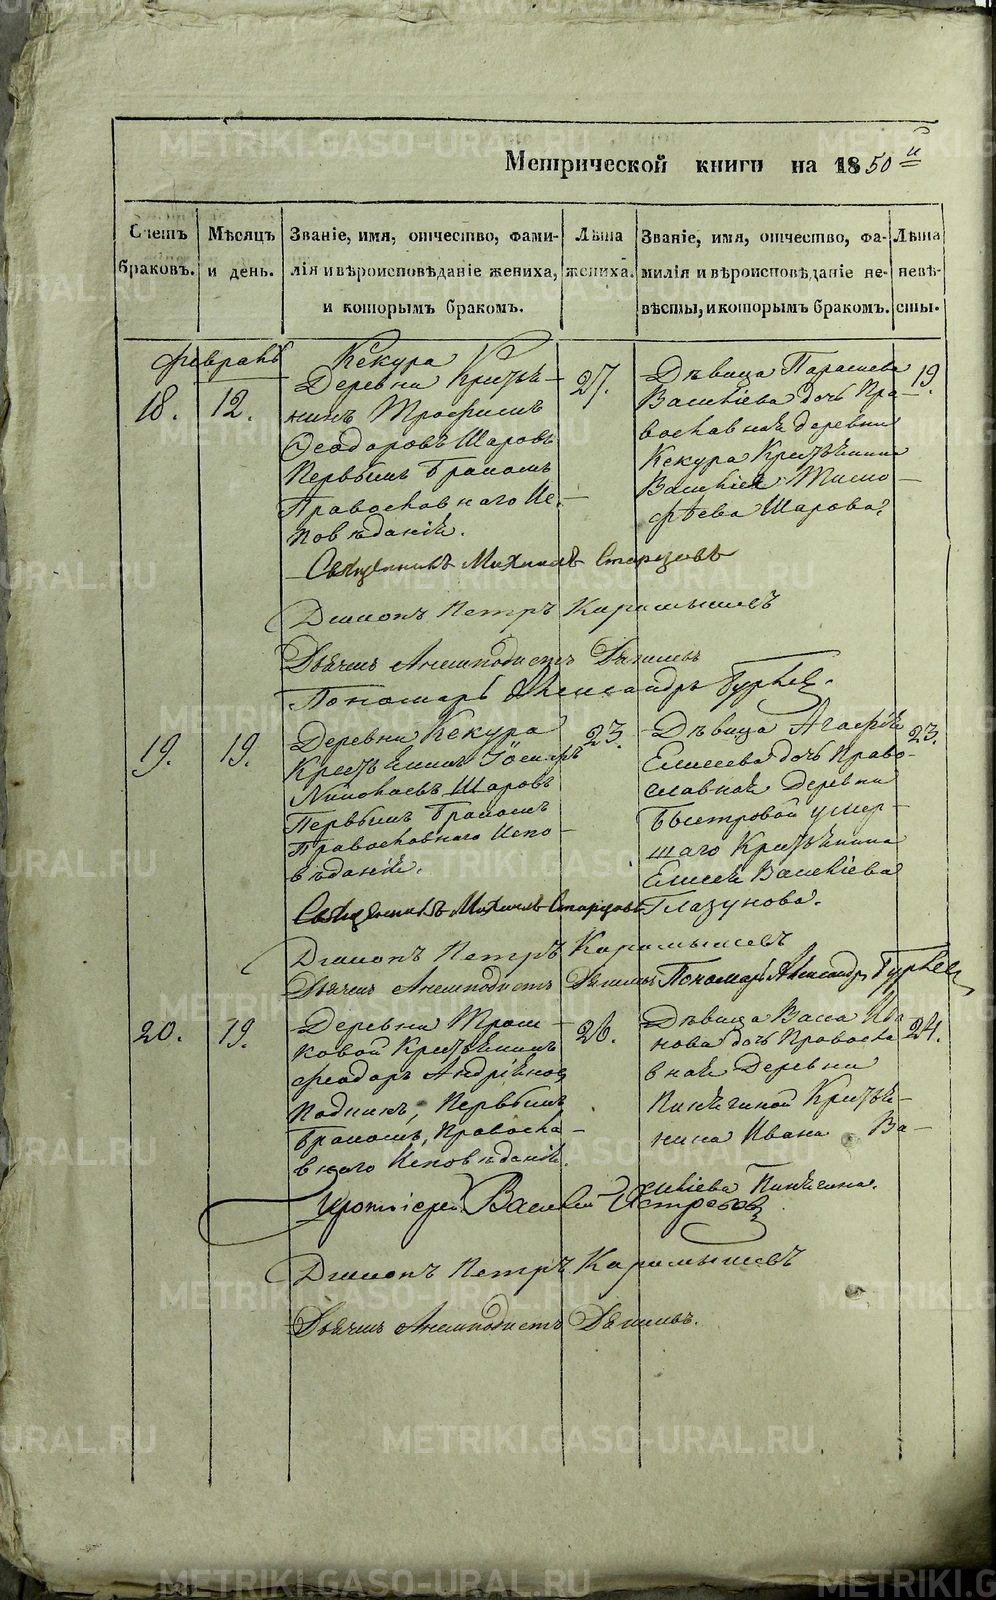 Метрической книги на 1850й
Счетъ браковъ.
Мѣсяцъ и день.
Званіе, имя, отчество, фами-
лія и вѣроисповѣданіе жениха,
и которымъ бракомъ.
Лѣта жениха.
Званіе, имя, отчество, фа-
милія и вѣроисповѣданіе не-
вѣсты, и которымъ бракомъ.
Лѣта невѣ-
сты.
Февраль
18.
12.
Кекура
Деревни Крестья-
нинъ Трофимъ
Феодоровъ Шаровъ
Первымъ Бракомъ
Православнаго Ис-
повѣданія.
27.
Дѣвица Параскева
Василіева дочь Пра-
вославная деревни
Кекура Крестьянина
Василія Тимо-
фѣева Шарова.
19.
Священникъ Михаилъ Старцовъ
Діаконъ Петръ Карамышевъ
Дьячекъ Анемподистъ
Пономарь Александръ Гурьев
19.
19.
Деревни Кекура
Крестьянинъ
Николаевъ Шаровъ
Первымъ Бракомъ
Православнаго Испо-
вѣданія.
23.
Дѣвица Агафія
Елисеева дочь Право-
славная Деревни
Быстровой умер-
шаго Крестьянина
Елисея Василіева
Глазунова.
23.
Священникъ Михаилъ Старцовъ
Діаконъ Петръ Карамышевъ
Дьячекъ Анемподистъ Пономарь Александръ Гурьев
20.
19.
Деревни Трош-
ковой Крестьянинъ
Феодоръ Андріяновъ
Первымъ
Бракомъ, Правосла-
внаго Исповѣданія.
26.
Дѣвица Васса Ива-
нова дочь Правосла
вная Деревни
Пинягиной Крестья-
нина Ивана Ва-
силіева Пинягина.
24.
Протоіерей Василій Ястребов
Діаконъ Петръ Карамышевъ
Дьячекъ Анемподистъ
METRIKI.GASO-URAL.RU